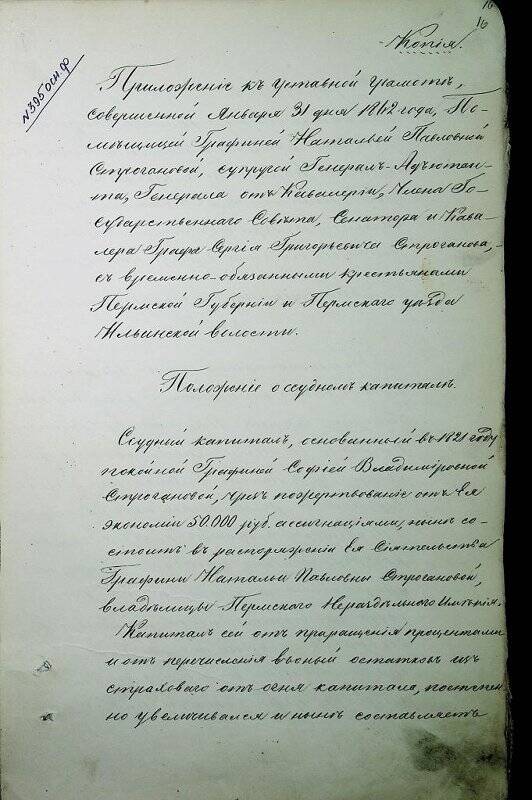 16
16
Копія.
N 395 осн. ф
Приложеніе къ уставной грамотѣ,
совершенной Января 31 дня 1862 года, По-
мѣщицей Графиней Натальей Павловной
Строгановой, супругой Генералъ-Адъютан-
та, Генерала отъ Кавалеріи, Члена Го-
сударственнаго Совѣта, Сенатора и Кава-
лера Графа Сергія Григорьевича Строганова,
съ временно-обязанными крестьянами
Пермской Губерніи и Пермскаго уѣзда
Ильинской волости.
Положеніе о ссудномъ капиталѣ.
Ссудный капиталъ, основанный въ 1821 году
покойной Графиней Софіей Владиміровной
Строгановой, чрезъ пожертвованіе отъ Ея
экономіи 50.000 руб. ассигнаціями, нынѣ со-
стоитъ въ распоряженіи Ея Сіятельства
Графини Натальи Павловны Строгановой,
владѣлицы Пермскаго Нераздѣльнаго Имѣнія.
Капиталъ сей отъ приращенія процентами
и отъ перечисленія въ оный остатковъ изъ
страховаго отъ огня капитала, постепен-
но увеличивался и нынѣ составляетъ